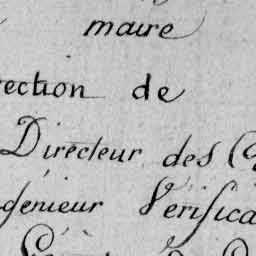 maire
rection de
Directeur des
génieur Vérifica